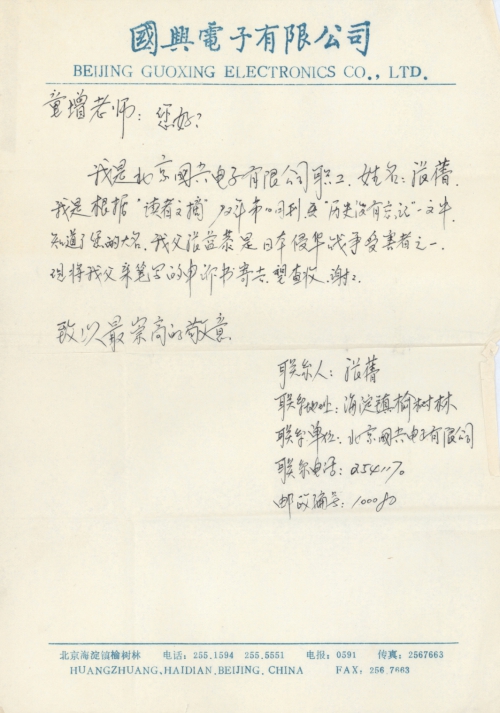 國興電子有限公司
BEIJING GUOXING ELECTRONICS CO., LTD.
童增老师：您好！
我是北京国兴电子有限公司职工 姓名：张蕾.
我是根据“读者文摘”93年第 月刊 “历史没有忘记”一文中
知道了您的大名, 我父张益泰是日本侵华战争受害者之一
现将我父亲笔写的申诉书寄去, 望查收. 谢谢.
致以最崇高的敬意
联系人：张蕾
联系地址：海淀镇榆树林
联系单位：北京国兴电子有限公司
联系电话：2541170
邮政编号：100080
北京海淀镇榆树林 电话：255.1594 255.5551 电报：0591 传真：2567663
HUANGZHUANG,HAIDIAN,BEIJING, CHINA FAX：256.7663